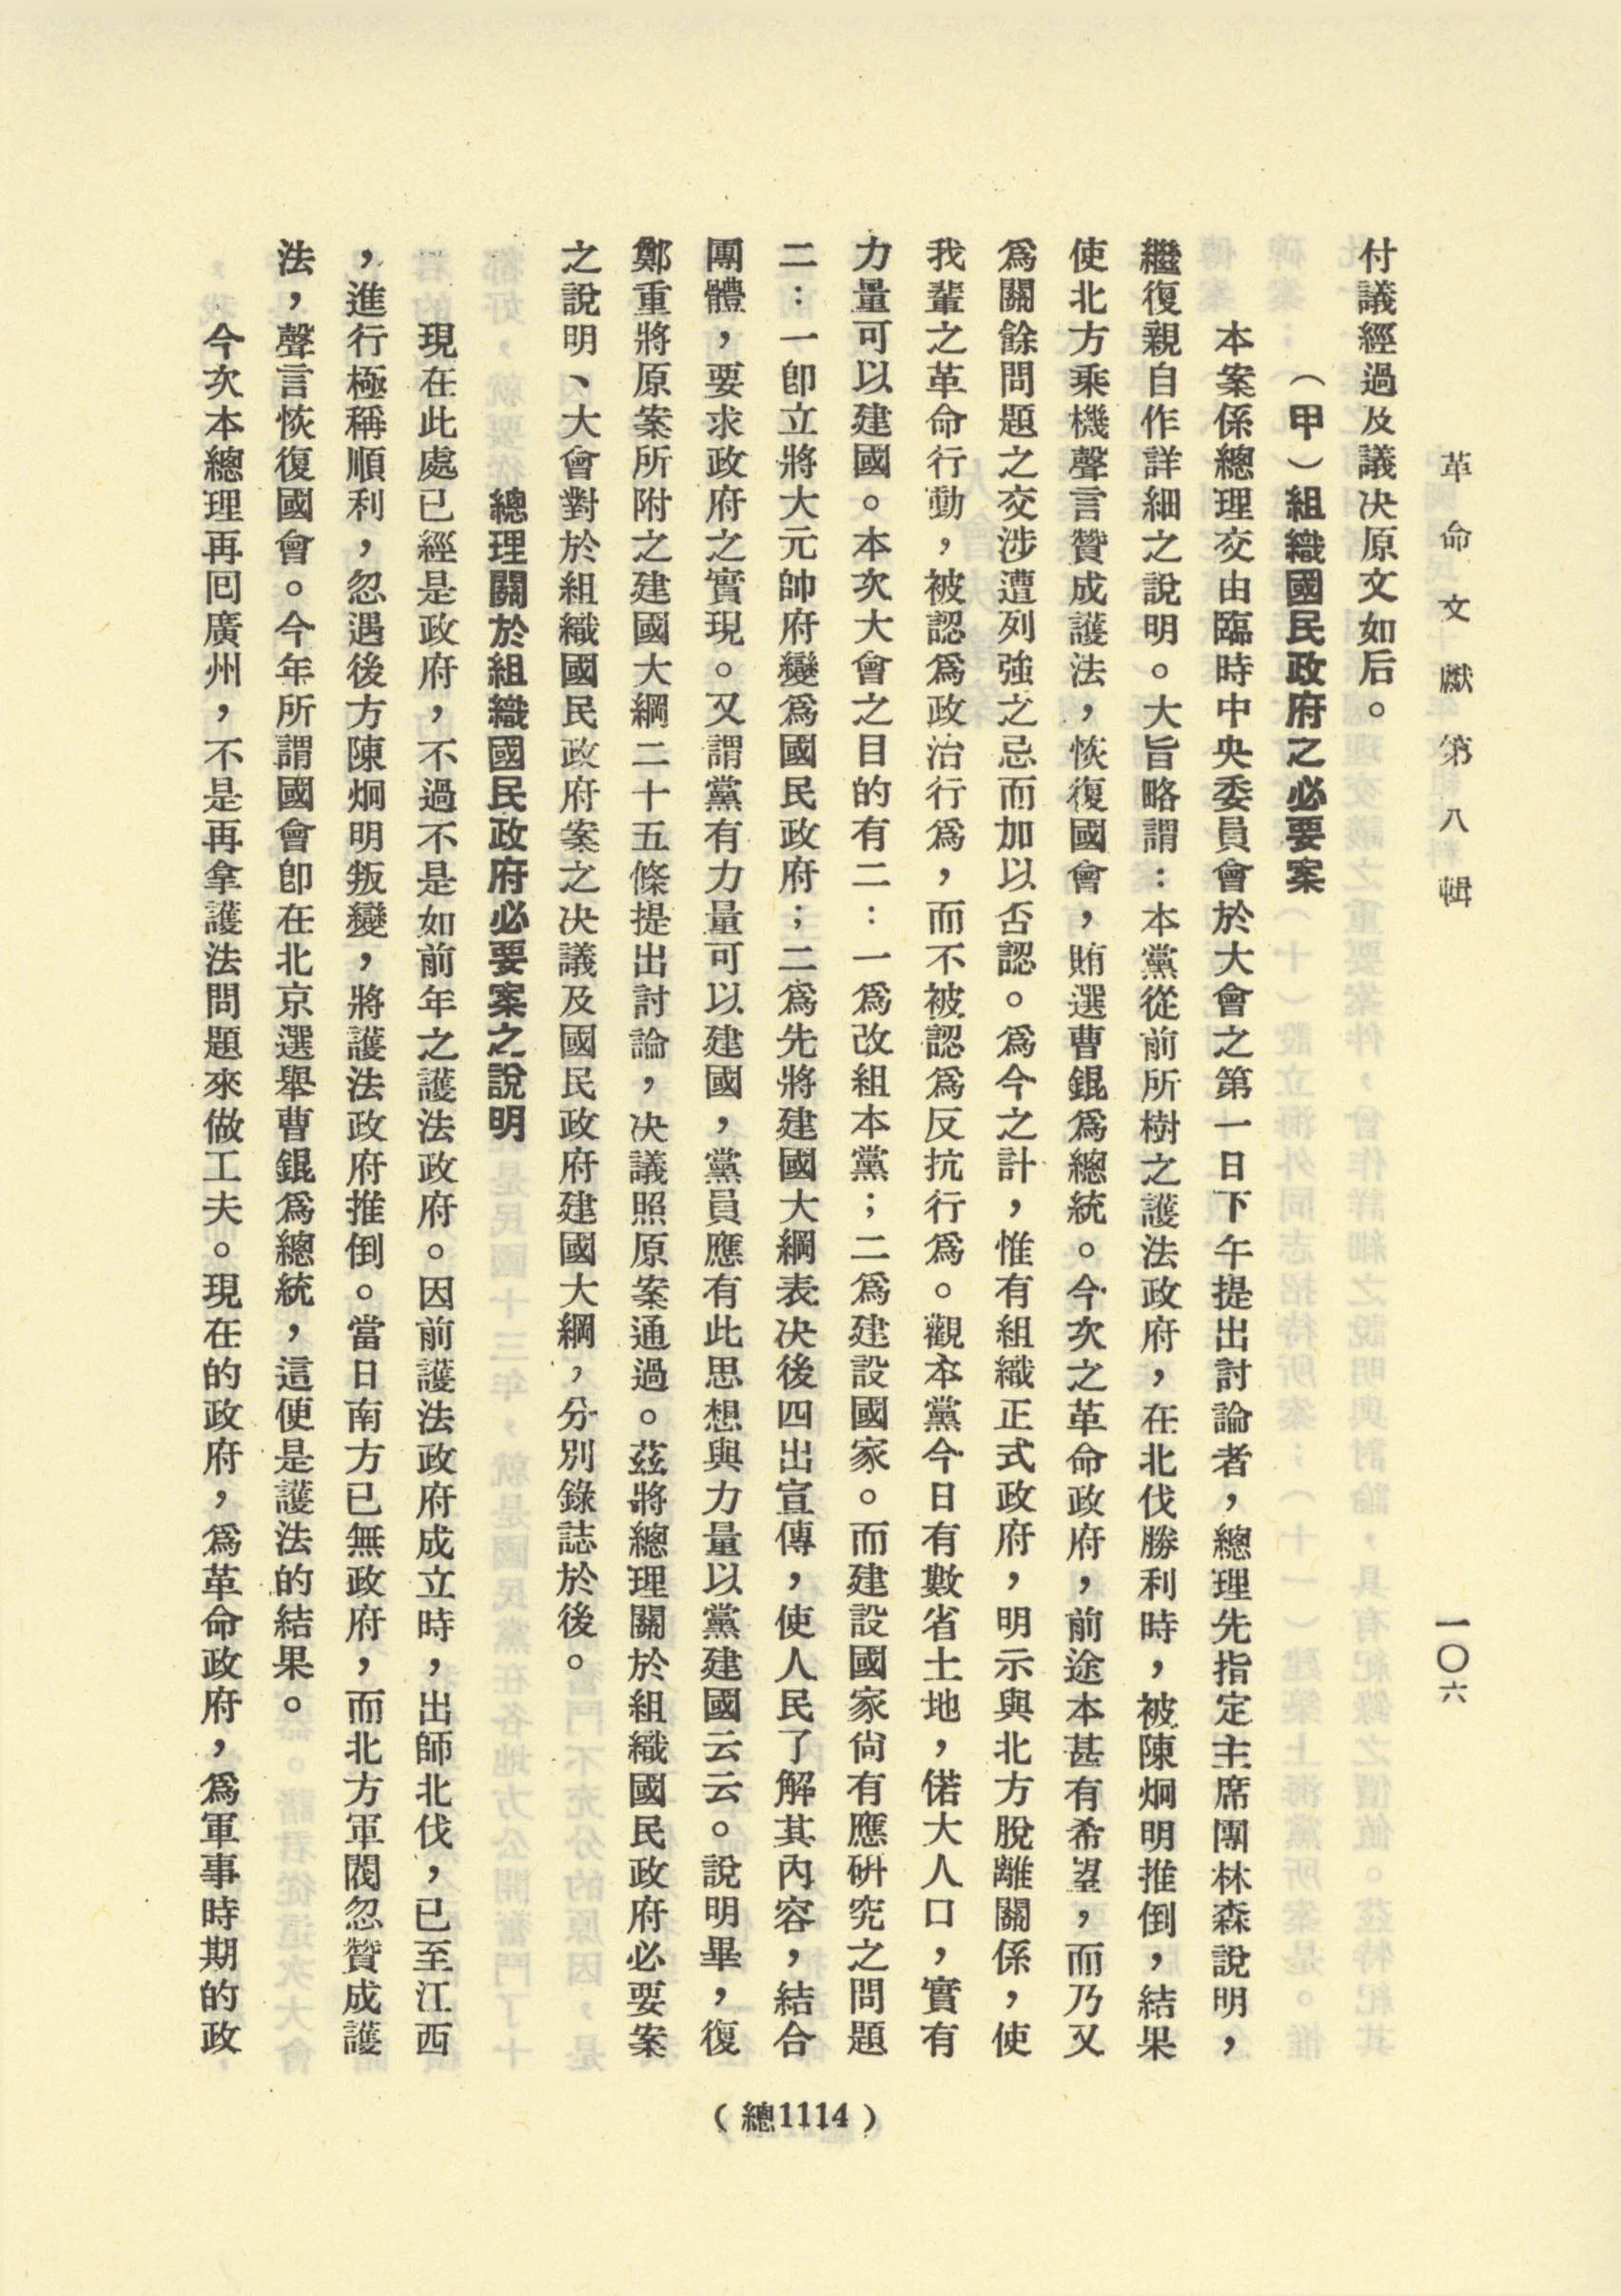 革命文獻第八輯
一〇六
付議經過及議决原文如后。
（甲）組織國民政府之必要案
本案係總理交由臨時中央委員會於大會之第一日下午提出討論者，總理先指定主席團林森說明，
繼復親自作詳細之說明。大旨略謂：本黨從前所樹之護法政府，在北伐勝利時，被陳烱明推倒，結果
使北方乘機聲言贊成護法，恢復國會，賄選曹錕爲總統。今次之革命政府，前途本甚有希望，而乃又
爲關餘問題之交涉遭列強之忌而加以否認。爲今之計，惟有組織正式政府，明示與北方脫離關係，使
我輩之革命行動，被認爲政治行爲，而不被認爲反抗行爲。觀本黨今日有數省土地，偌大人口，實有
力量可以建國。本次大會之目的有二：一爲改組本黨；二爲建設國家。而建設國家尙有應硏究之問題
二：一卽立將大元帥府變爲國民政府；二爲先將建國大綱表决後四出宣傳，使人民了解其內容，結合
團體，要求政府之實現。又謂黨有力量可以建國，黨員應有此思想與力量以黨建國云云。說明畢，復
鄭重將原案所附之建國大綱二十五條提出討論，决議照原案通過。茲將總理關於組織國民政府必要案
之說明、大會對於組織國民政府案之决議及國民政府建國大綱，分別錄誌於後。
總理關於組織國民政府必要案之說明
現在此處已經是政府，不過不是如前年之護法政府。因前護法政府成立時，出師北伐，已至江西
，進行極稱順利，忽遇後方陳烱明叛變，將護法政府推倒。當日南方已無政府，而北方軍閥忽贊成護
法，聲言恢復國會。今年所謂國會卽在北京選舉曹錕爲總統，這便是護法的結果。
今次本總理再囘廣州，不是再拿護法問題來做工夫。現在的政府，爲革命政府，爲軍事時期的政
（總1114）